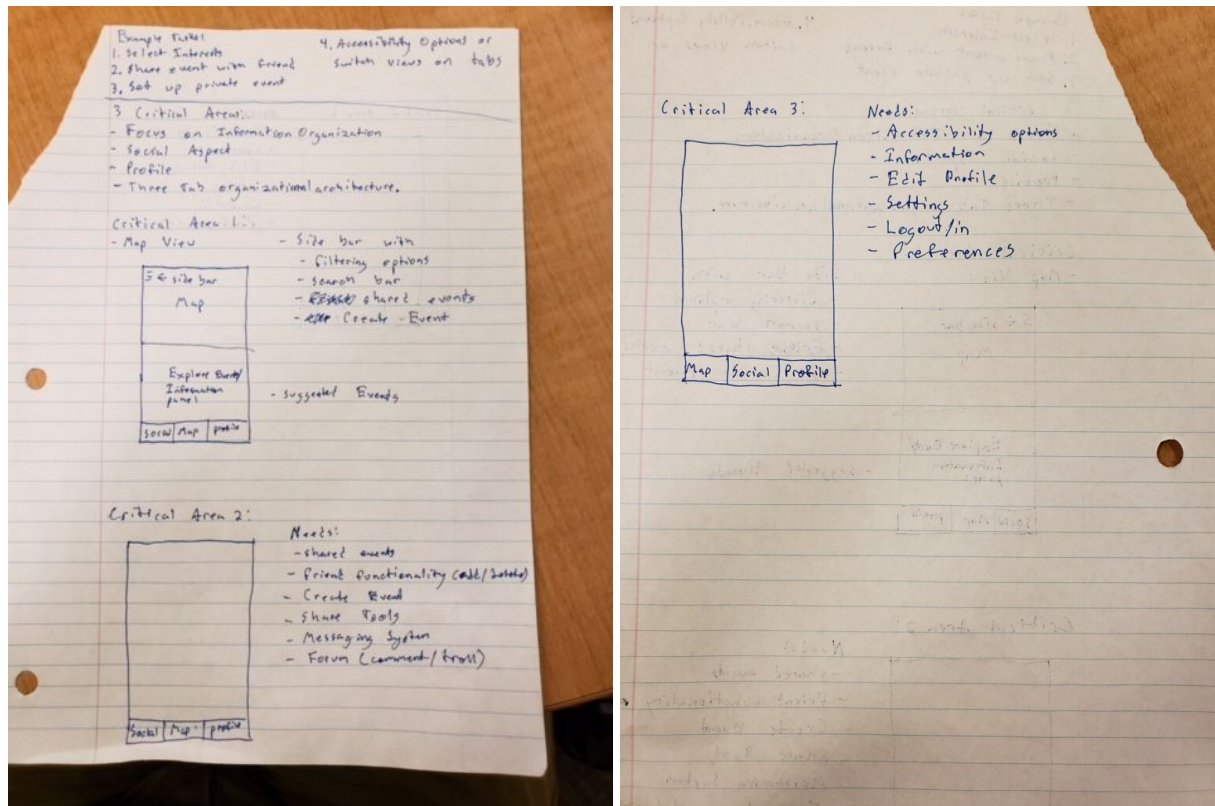 Example Tasks:
1. Select Interests
2. Share event with friend
3. Set up private event
4. Accessibility Options or
switch views on tabs
3 Critical Areas:
- Focus on Information Organization
- Social Aspect
- Profile
- Three Tab organizational architecture.
Critical Area 1:
- Map View
- Side bar with
- filtering options
- search bar
- shared events
- Create Event
← side bar
Map
Explore Events/
Information
panel
- suggested Events
Social Map profile
Critical Area 2:
Needs:
- shared events
- friend functionality (add/delete)
- Create Event
- Share Tools
- Messaging System
- Forum (comment/troll)
Social Map profile
Critical Area 3:
Needs:
- Accessibility options
- Information
- Edit Profile
- Settings
- Logout/in
- Preferences
Map Social Profile